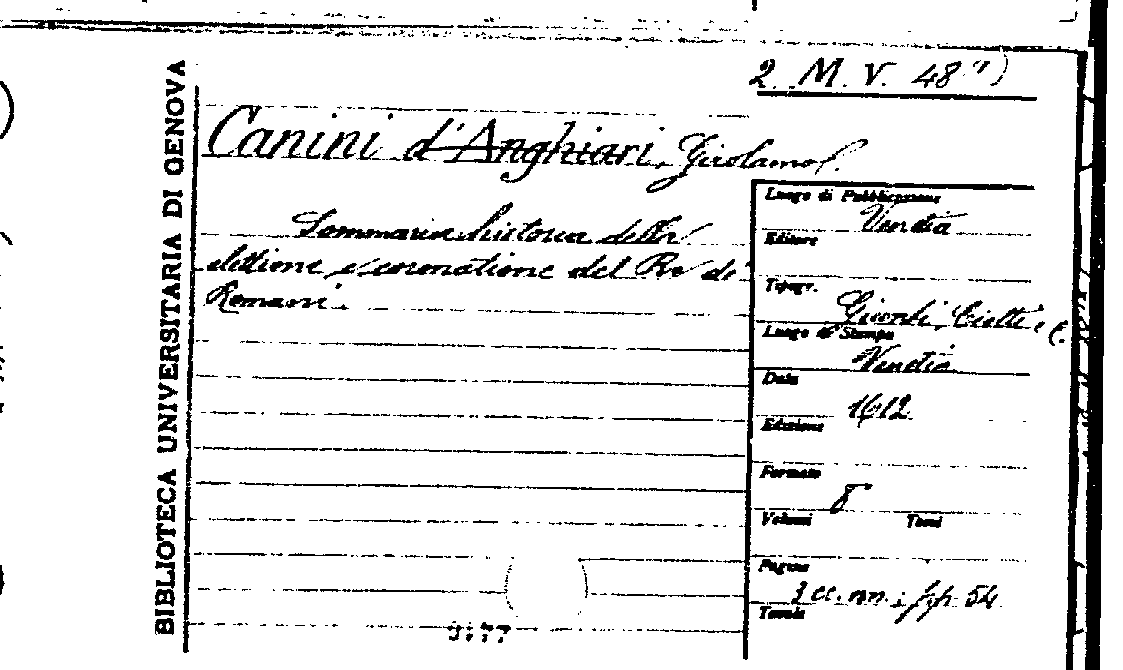 2. M. V. 48 7)
BIBLIOTECA UNIVERSITARIA DI GENOVA
Canini d'Anghiari, Girolamo.
Sommaria historia della
elettione, e coronatione del Re de'
Romani.
Luogo di Pubblicazione
Venetia
Editore
Tipogr.
Giunti, Ciotti e C.
Luogo di Stampa
Venetia
Data
1612
Edizione
Formato
8
Volumi Tomi
Pagine
3 cc. nn.; pp. 54
Tavole